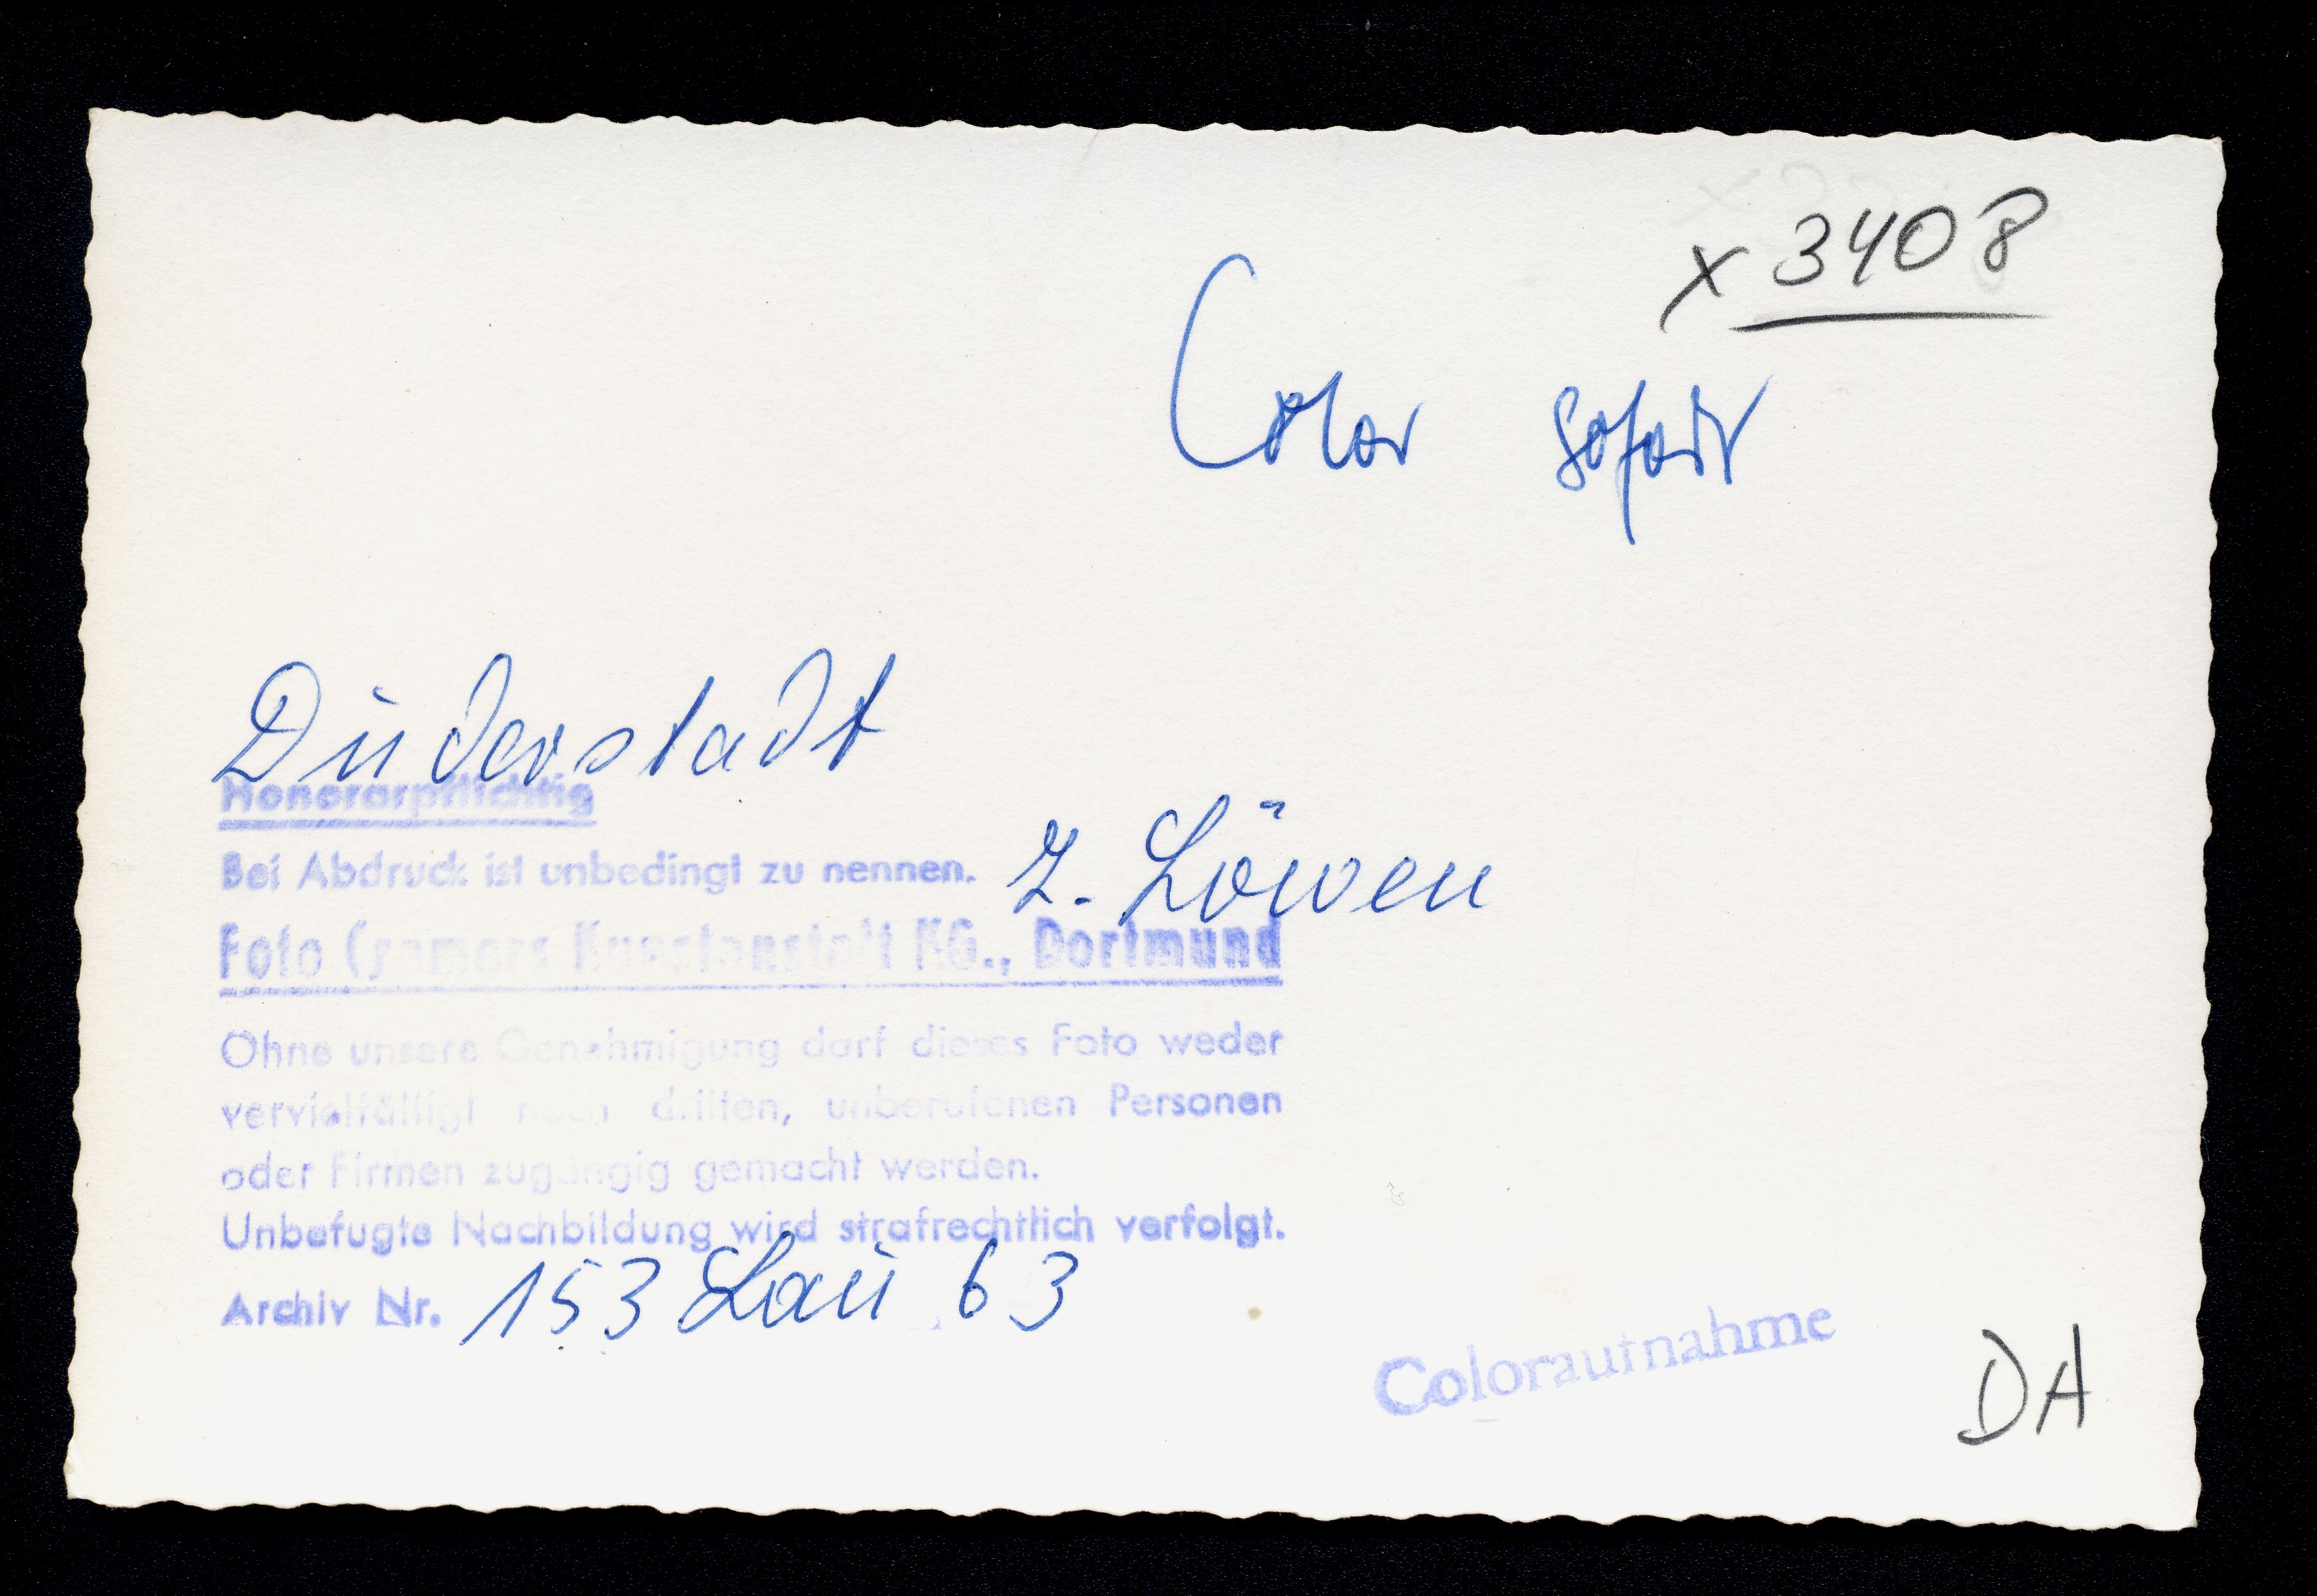 x 3408
Color sofort
Duderstadt
Honorarpflichtig
z. Löwen
Bei Abdruck ist unbedingt zu nennen.
Foto Cramers Kunstanstalt KG., Dortmund
Ohne unsere Genehmigung darf dieses Foto weder
vervielfältigt noch dritten, unberufenen Personen
oder Firmen zugängig gemacht werden.
Unbefugte Nachbildung wird strafrechtlich verfolgt.
Archiv Nr. 153 Lau 63
Coloraufnahme
DA